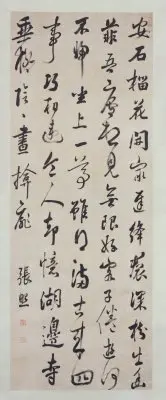 安石榴開最遲絳裙深樹出幽
菲吾廬想見無限好客子倦遊何
不歸坐上一尊雖得滿古來四
事巧相違令人却憶湖邊寺
垂柳陰々晝掩扉
張照